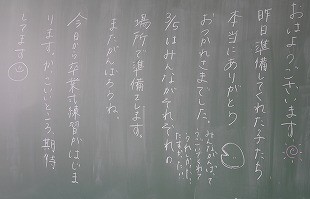 おはようございます。
昨日準備してくれた子たち
本当にありがとう
おつかれさまでした。
みんながんばって
うごいてくれて
うれしかった
たすかった
3/5はみんながそれぞれの
場所で準備します。
またがんばろうね。
今日から卒業式練習がはじま
ります。かっこいいところ期待
してます